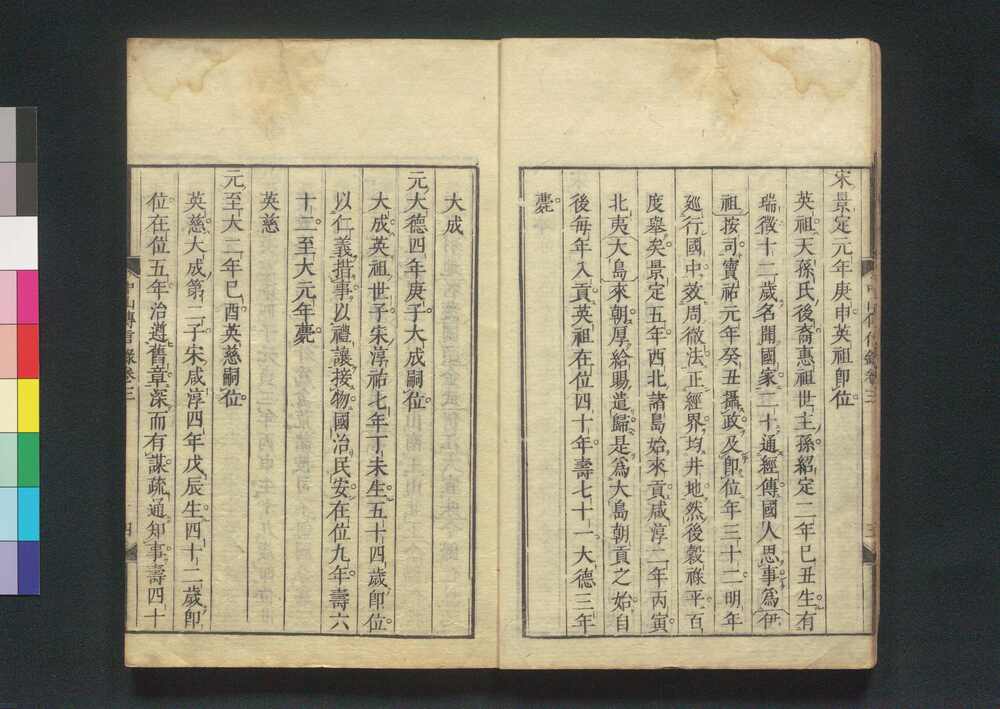 宋景定元年庚申英祖即位
英祖天孫氏後裔惠祖世主孫紹定二年巳丑生有
瑞徵十二歲名聞國家二十通經傳國人思事為伊
祖按司寶祐元年癸丑攝政及即位年三十二明年
廵行國中效周徹法正經界均井地然後穀祿平百
度舉矣景定五年西北諸島始來貢咸淳二年丙寅
北夷大島來朝厚給賜遣歸是為大島朝貢之始自
後每年入貢英祖在位四十年壽七十一大德三年
薨
大成
元大德四年庚子大成嗣位
大成英祖世子宋淳祐七年丁未生五十四歲即位
以仁義措事以禮讓接物國治民安在位九年壽六
十二至大元年薨
英慈
元至大二年巳酉英慈嗣位
英慈大成第二子宋咸淳四年戊辰生四十二歲即
位在位五年治遵舊章深而有謀疏通知事壽四十
中山傳信錄卷三
四